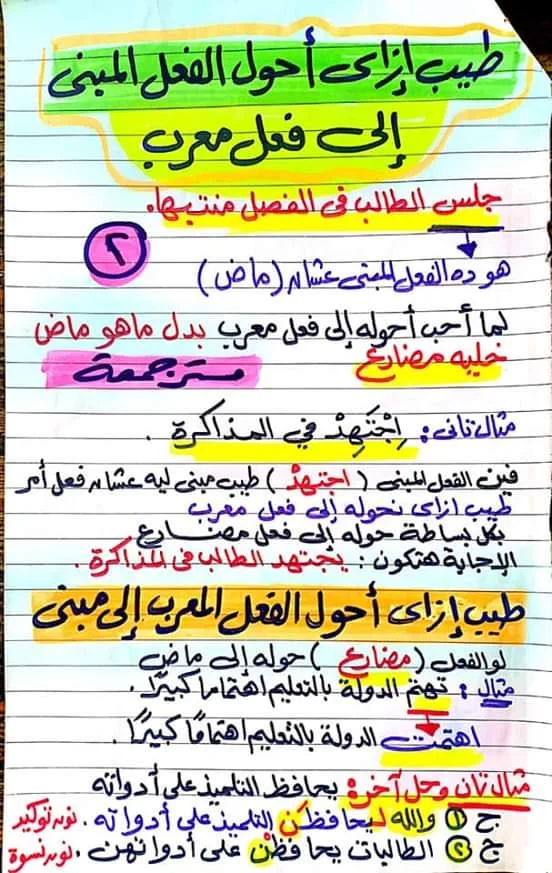 طيب إزاى أحول الفعل المبنى
إلى فعل معرب
جلس الطالب فى الفصل منتبها.
٢
هو ده الفعل المبنى عشان (ماض)
لما أحب أحوله إلى فعل معرب بدل ماهو ماض
خليه مضارع
مستر جمعة
مثال تانى: اِجْتَهِدْ في المذاكرة.
فين الفعل المبنى (اجتهدْ) طيب مبنى ليه عشان فعل أمر
طيب ازاى نحوله إلى فعل معرب
بكل بساطة حوله إلى فعل مضارع
الإجابة هتكون: يجتهد الطالب فى المذاكرة.
طيب إزاى أحول الفعل المعرب إلى مبنى
لو الفعل (مضارع) حوله إلى ماض
مثال: تهتم الدولة بالتعليم اهتماما كبيرًا.
اهتمت الدولة بالتعليم اهتمامًا كبيرًا.
مثال تان وحل آخر: يحافظ التلميذ على أدواته
ج ١ والله ليحافظن التلميذ على أدواته. نون توكيد
ج ٢ الطالبات يحافظْن على أدواتهن. نون نسوة